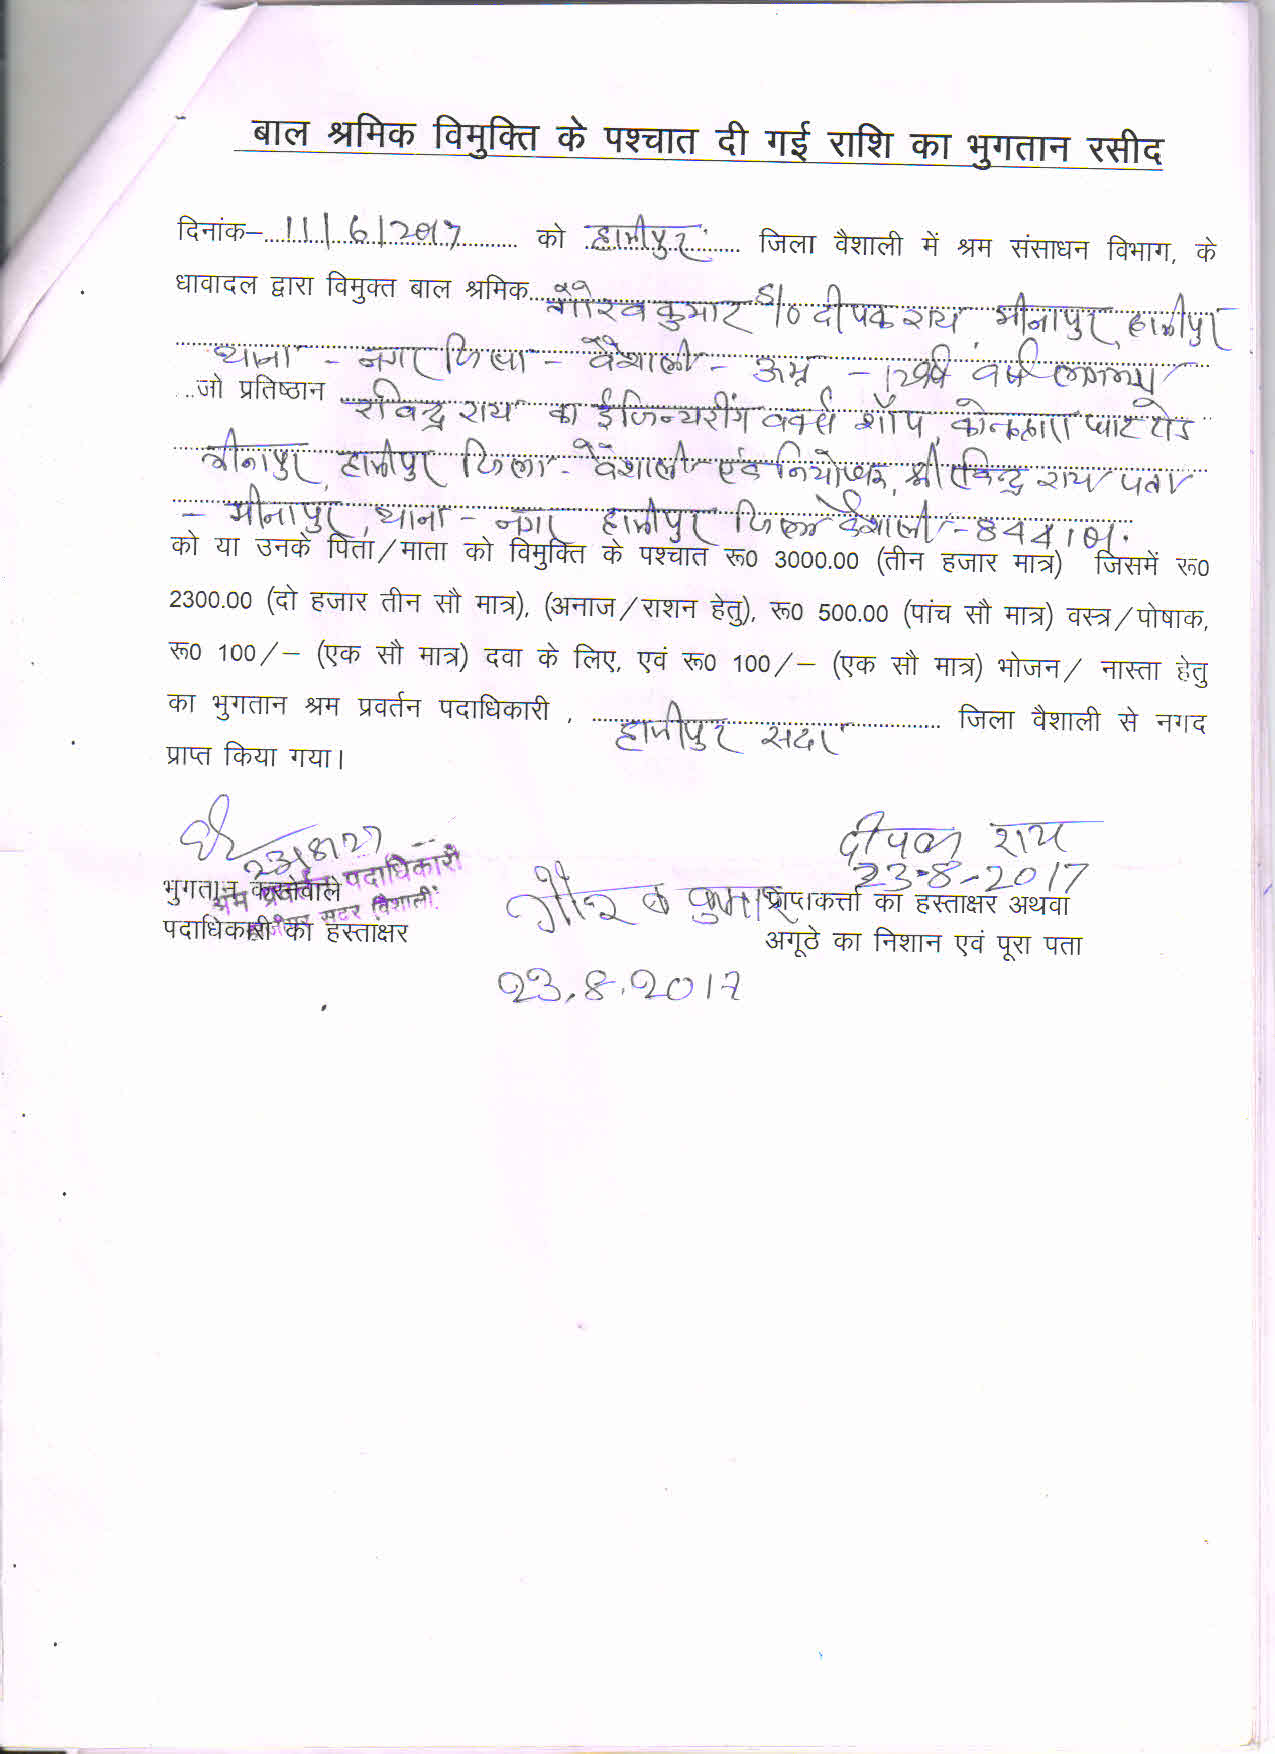 बाल श्रमिक विमुक्ति के पश्चात दी गई राशि का भुगतान रसीद
दिनांक– 11/6/2017 को हाजीपुर जिला वैशाली में श्रम संसाधन विभाग, के
धावादल द्वारा विमुक्त बाल श्रमिक गौरव कुमार S/o दीपक राय, मीनापुर, हाजीपुर
थाना - नगर जिला - वैशाली - उम्र - 12 वर्ष लगभग
जो प्रतिष्ठान रविन्द्र राय का ईंजिन्यरींग वर्क्स शॉप, कोनहारा घाट रोड
मीनापुर, हाजीपुर जिला - वैशाली एवं नियोजक, श्री रविन्द्र राय पता
- मीनापुर, थाना - नगर हाजीपुर जिला वैशाली - 844101.
को या उनके पिता/माता को विमुक्ति के पश्चात रू0 3000.00 (तीन हजार मात्र) जिसमें रू0
2300.00 (दो हजार तीन सौ मात्र), (अनाज/राशन हेतु), रू0 500.00 (पांच सौ मात्र) वस्त्र/पोषाक,
रू0 100/– (एक सौ मात्र) दवा के लिए, एवं रू0 100/– (एक सौ मात्र) भोजन/ नास्ता हेतु
का भुगतान श्रम प्रवर्तन पदाधिकारी , हाजीपुर सदर जिला वैशाली से नगद
प्राप्त किया गया।
दीपक राय
23-8-2017
23/8/17
श्रम प्रवर्तन पदाधिकारी
हाजीपुर सदर वैशाली
भुगतान करनेवाले
पदाधिकारी का हस्ताक्षर
गौरव कुमार
23.8.2017
प्राप्तकर्त्ता का हस्ताक्षर अथवा
अगूठे का निशान एवं पूरा पता